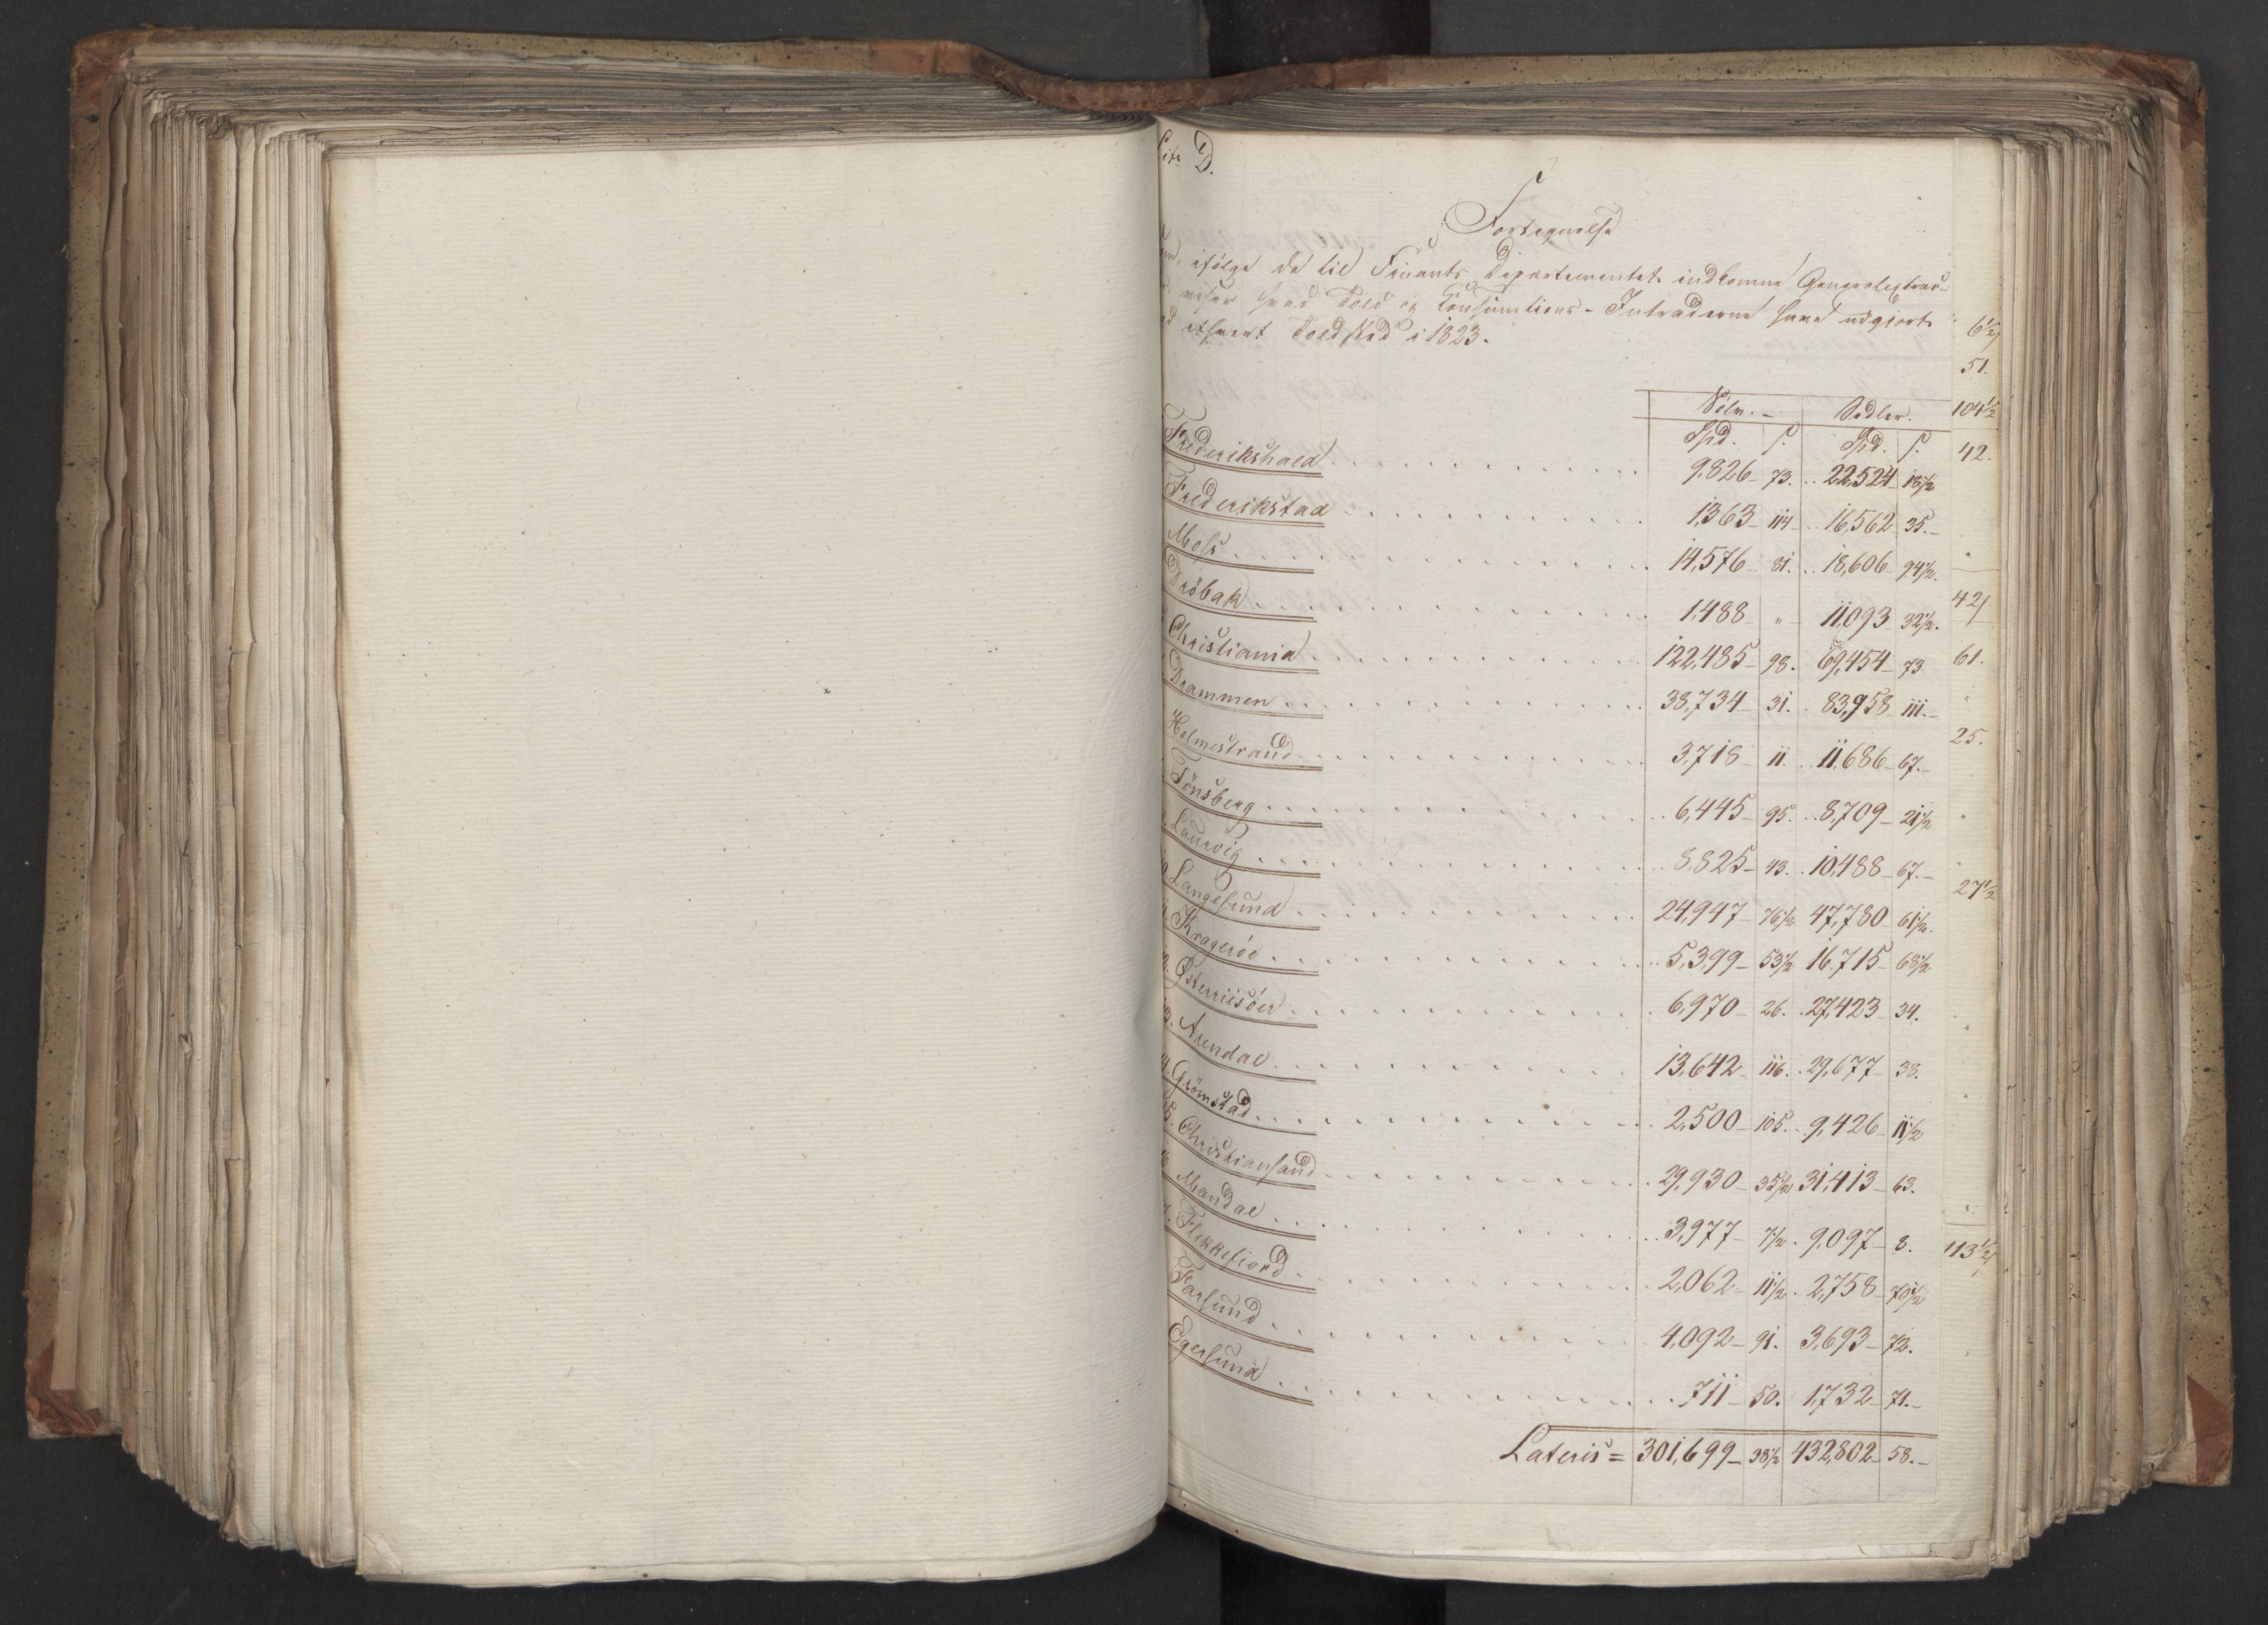 Litr D.
Fortegnelse
ifølge de til Finants Departementet indkomne Generalextrac-
viser hvad Told og Consumtions-Intraderne have udgjort
ethvert Toldsted i 1823.
Sølv. Sedler.
Spd. s. Spd. s.
Frederikshald 9,826 73. 22,524 18½
Frederikstad 1,363 114 16,562 35.
Moss 14,576 81. 18,606 94½.
Dröbak 1,488 " 11,093 32½.
Christiania 122,485 98. 69,454 73
Drammen 38,734 31. 83,958 111.
Holmestrand 3,718 11. 11,686 67.
Tönsberg 6,445 95. 8,709 21½
Laurvig 8,825 43. 10,488 67.
Langesund 24,947 76½ 47,780 61½.
Kragerøe 5,399 53½ 16,715 68½
Østerriisöer 6,970 26. 27,423 34.
Arendal 13,642 116. 29,677 38.
Grömstad 2,500 105. 9,426 11½
Christiansand 29,930 35½ 31,413 63.
Mandal 3,977 7½ 9,097 8.
Flekkefiord 2,062 11½ 2,758 70½
Farsund 4,092 91. 3,693 72.
Egersund 711 50. 1,732 71.
Lateris = 301,699 38½ 432,802 58.
6½
51.
104½
42.
42
61.
25.
27½
113½